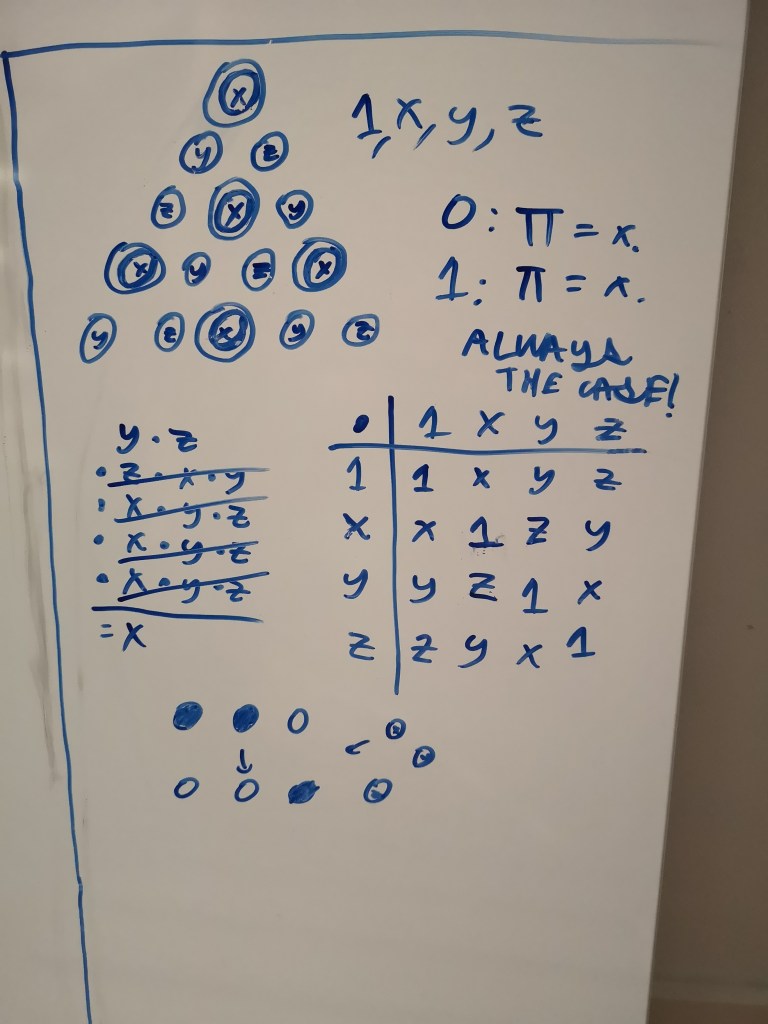 x
1, x, y, z
y z
z x y
x y z x
y z x y z
0: π = x.
1: π = x.
ALWAYS
THE CASE!
y · z
· z · x · y
· x · y · z
· x · y · z
· x · y · z
= x
· 1 x y z
1 1 x y z
x x 1 z y
y y z 1 x
z z y x 1